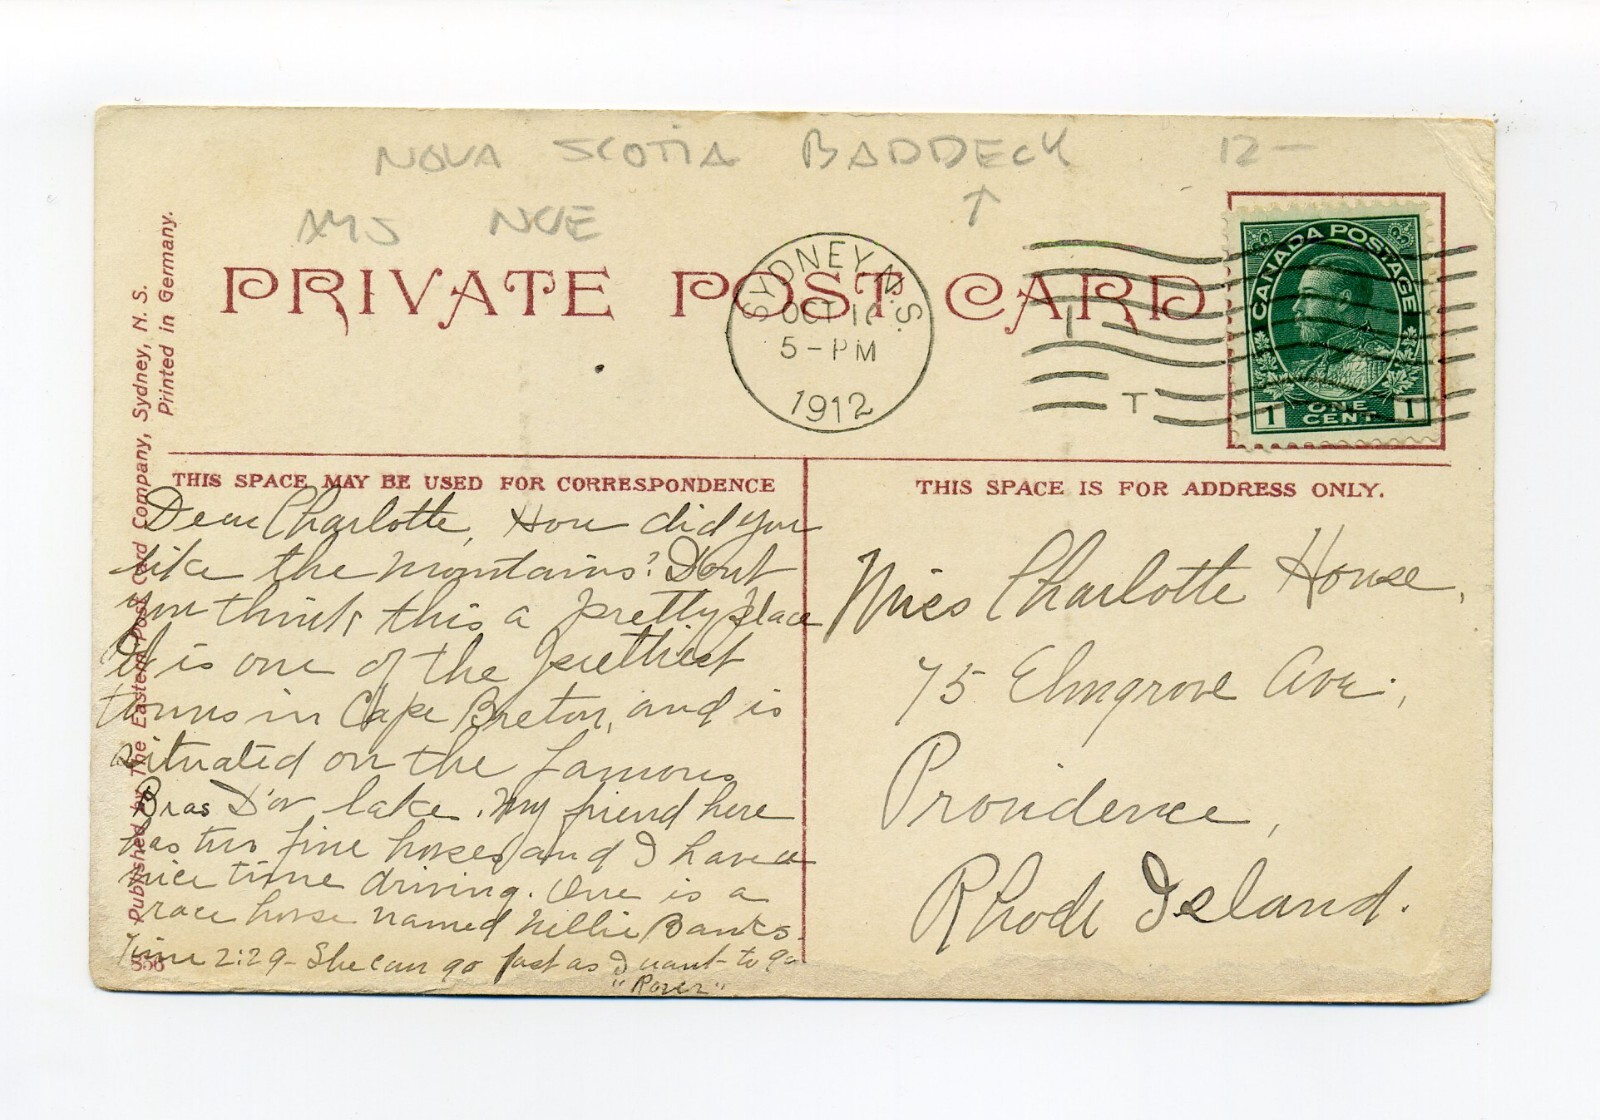 NOVA SCOTIA BADDECK 12-
PRIVATE POST CARD
SYDNEY, N.S.
OCT 1
5 - PM
1912
T
CANADA POSTAGE
1 ONE CENT 1
Published by The Eastern Post Card Company, Sydney, N. S.
Printed in Germany.
556
THIS SPACE MAY BE USED FOR CORRESPONDENCE
Dear Charlotte, How did you
like the mountains? Dont
you think this a pretty place
It is one of the prettiest
towns in Cape Breton, and is
situated on the famous
Bras D'or lake. My friend here
has two fine horses and I have a
nice time driving. One is a
race horse named Nellie Banks.
Time 2:29 - She can go fast as I want to go
"Rover"
THIS SPACE IS FOR ADDRESS ONLY.
Miss Charlotte House,
75 Elmgrove Ave.,
Providence,
Rhode Island.